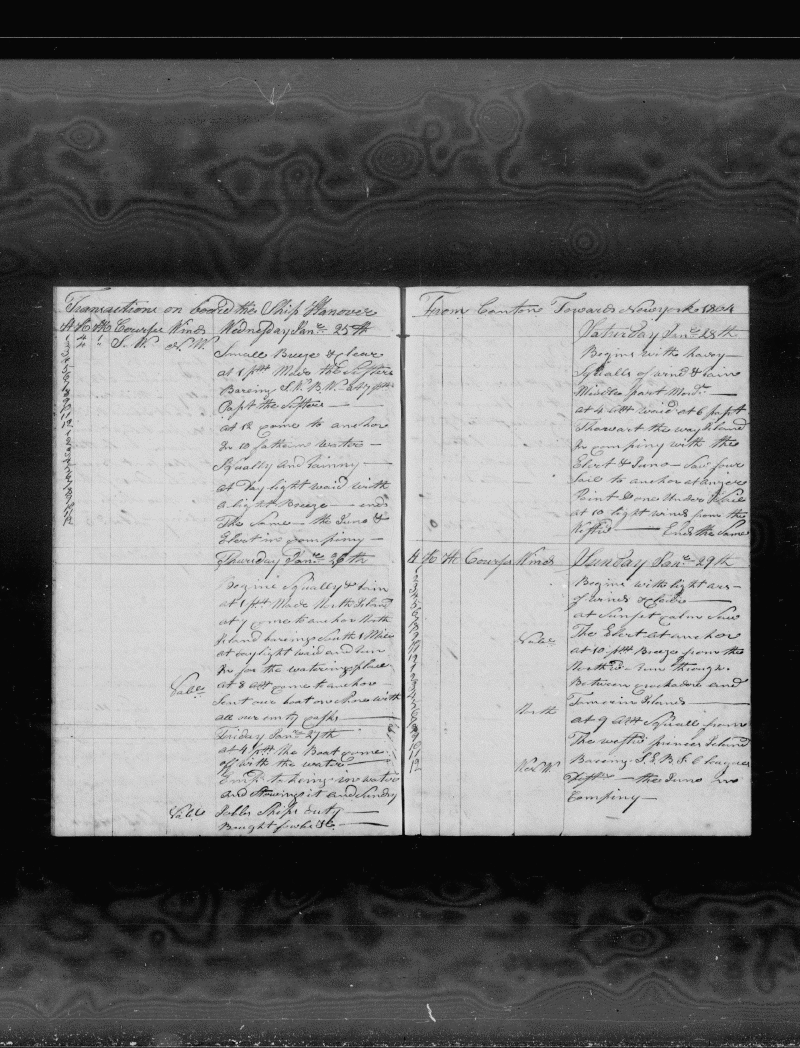 Transactions on board the Ship Hanover
H K HK Courses Winds Wednesday Janr 25th
4 S. W. N. W.
Small Breeze & clear
at 1 pM Made the Sisters
Bareing S.W.B.W. at 7 pM
Past the Sisters
at 12 come to anchor
In 10 fathem water
Squally and rainny
at Day light waid with
a light Breeze — ends
The Same — the Juno &
Elert in compiny
Thursday Janr 26th
Begins Squally & rain
at 1 pM Made North Island
at 7 come to anchor North
Island bareing South 1 Mile
at daylight waid and run
In for the watering place
Vable at 8 AM come to anchor
Sent our boat on shore with
all our emty casks
Friday Janr 27th
at 4 pM the Boat come
off with the water
Empy takeing in water
and Stowing it and Sundry
Vable Jobbs Ships duty
Bought fowls &c
From Canton Towards Newyork 1804
Saturday Janr 28th
Begins with heavy
Squalls of wind & raine
Middle part Modr
at 4 AM waid at 6 past
Thawart the way Island
In compiny with the
Elert & Juno — Saw four
Sail to anchor at anger
Point & one Under Sail
at 10 light winds from the
Ends the Same
H K HK Courses Winds Sunday Janr 29th
Begins with light airs
of winds & Clear
at Sunset calm Saw
Vable The Elert at anchor
at 10 pM Breeze from the
North — run through
Between crockadore and
North Islands
at 9 AM Squall from
The princes Island
Nor W. Bareing S.E.B.S. 6 leagues
the Juno in
Compiny